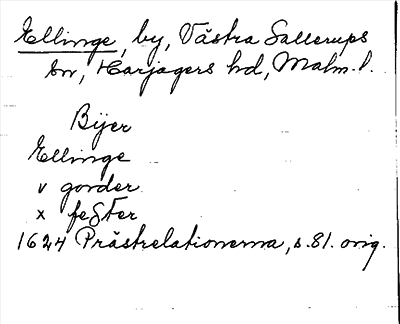 Ellinge, by, Västra Sallerups
sn, Harjagers hd, Malm. l.
Bijer
Ellinge
v gorder
x fester
1624 Prästrelationerna, s. 81. orig.